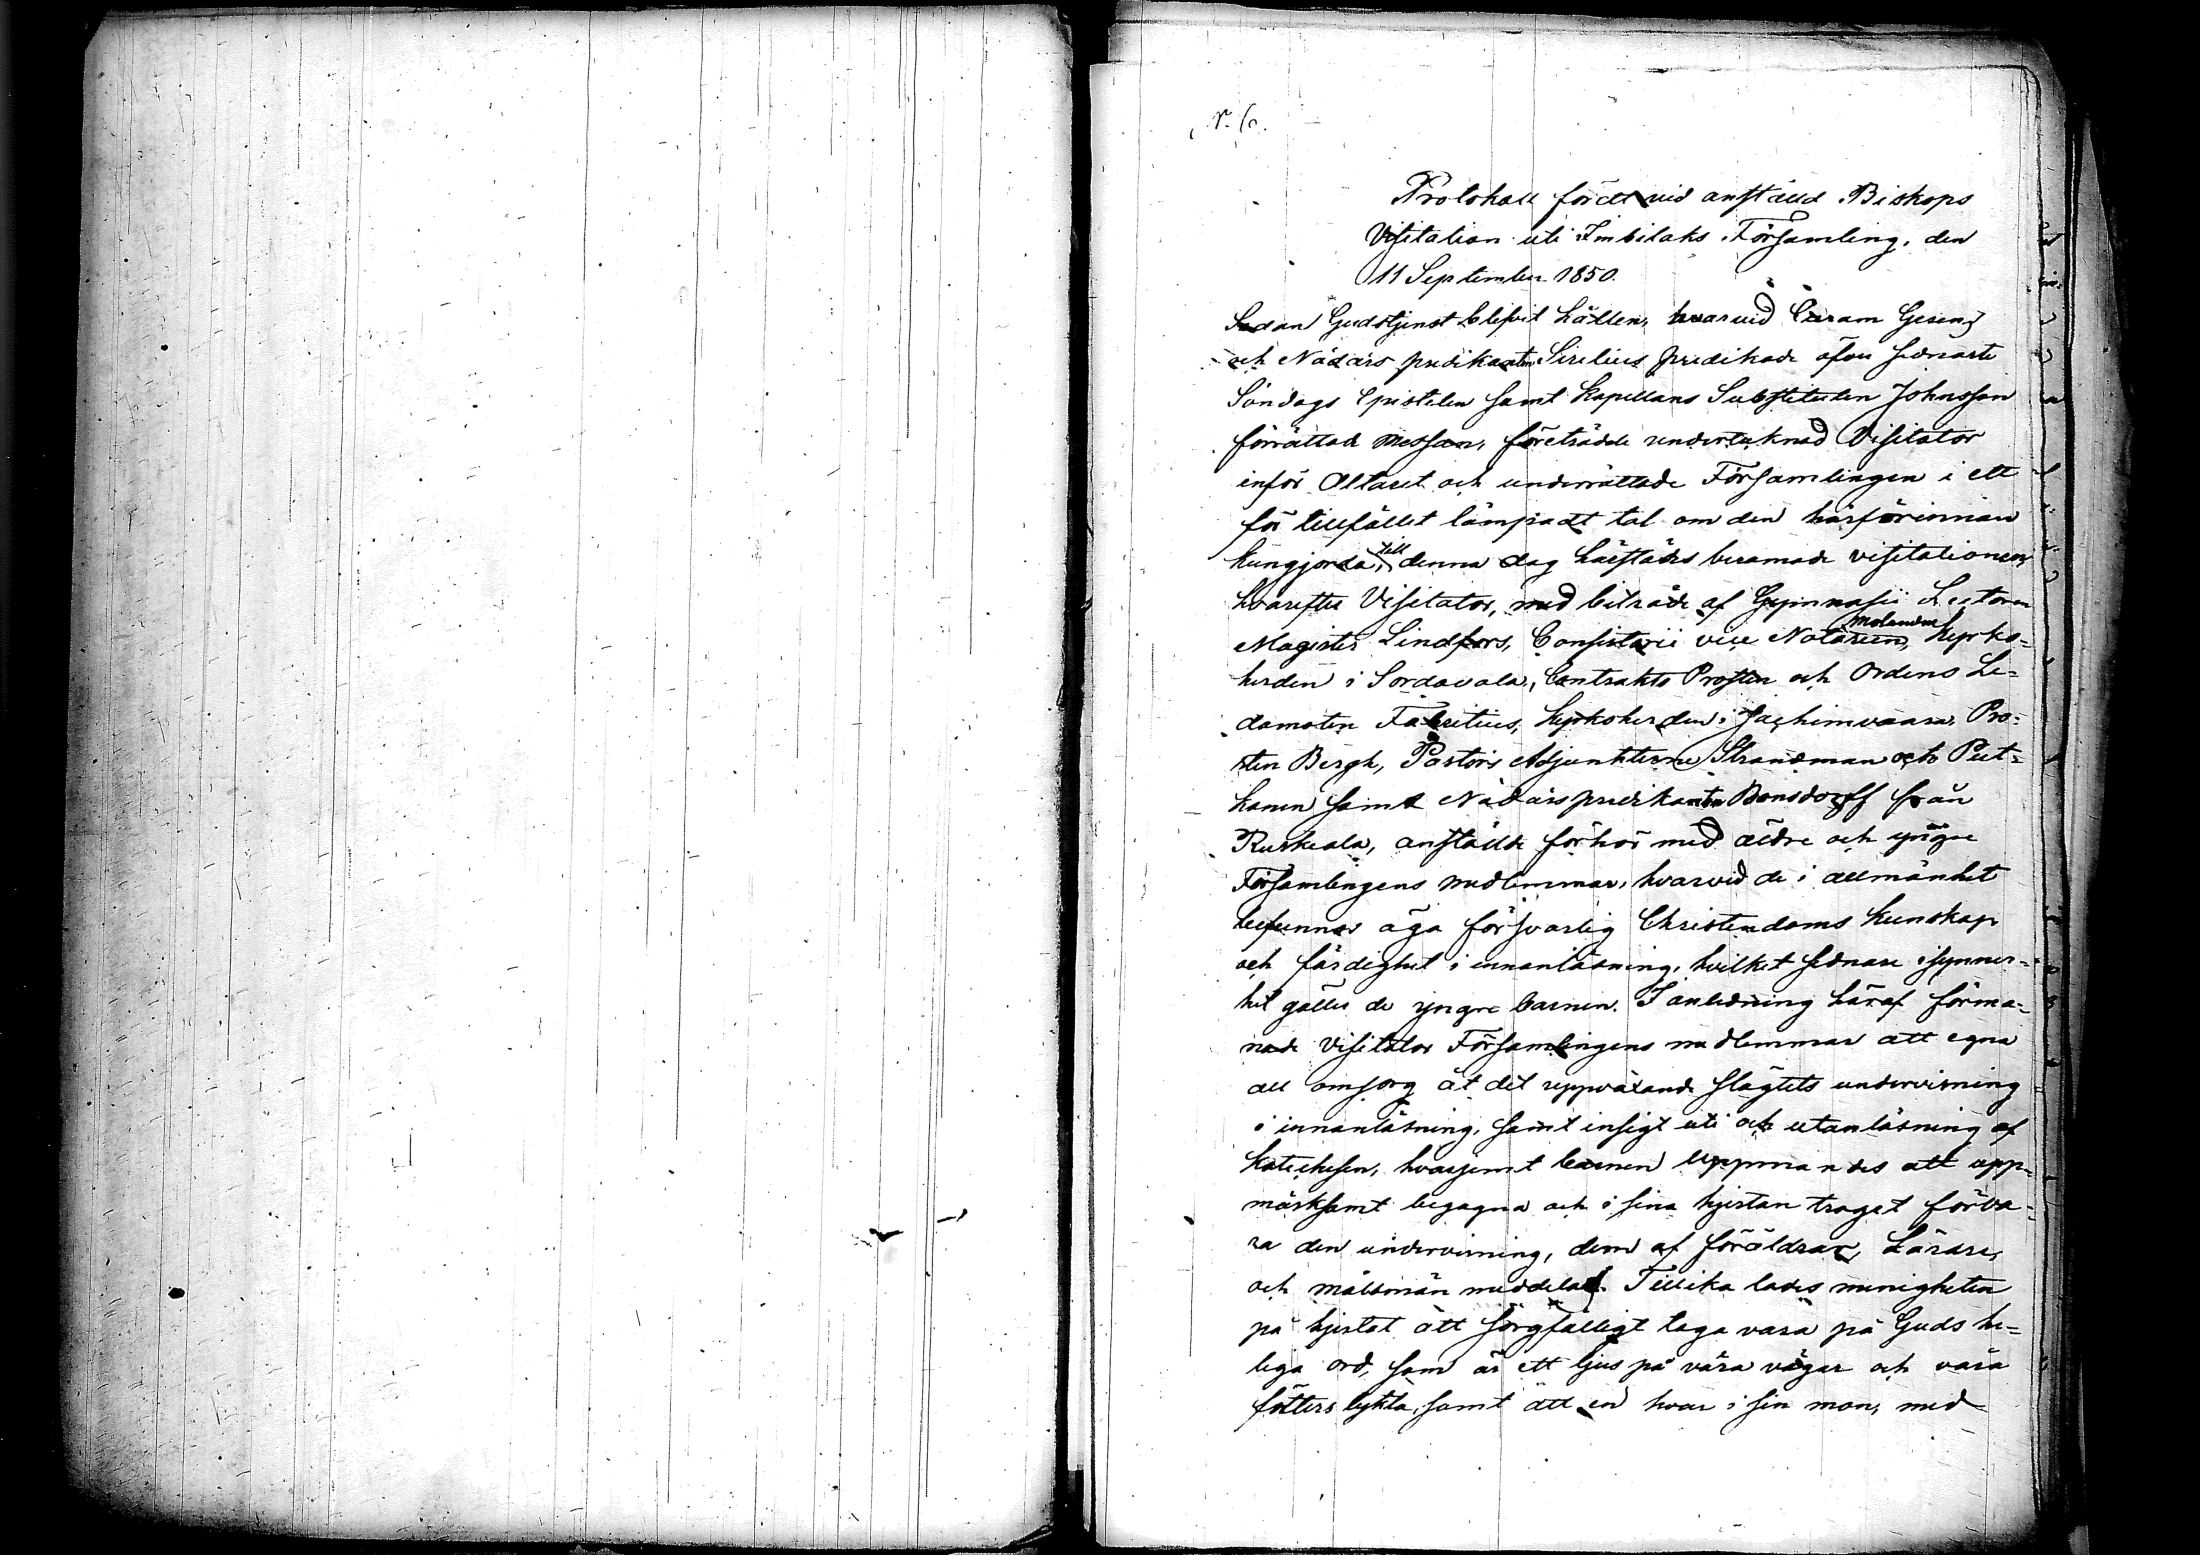 Protokoll fördt vid anstäld Biskops
Visitation uti Imbilaks Församling, den
11 September 1850.
Sedan Gudstjenst blifvit hållen, hvarvid Curam Gerens
och Nådårs predikanten Sirelius predikade öfver sednaste
Söndags Epistelen samt Kapellans Substituten Johnsson
förrättade messan, företrädde undertecknad Visitator
inför Altaret och underrättade Församlingen i ett
för tillfället lämpadt tal om den härförinnan
kungjorda, till denna dag härstädes beramade visitationen,
hvarefter Visitator, med biträde af Gymnasii Lectoren
Magister Lindfors, Consistorii vice Notarien Molander, Kyrko-
herden i Sordavala, Contrakts Prosten och Ordens Le-
damoten Fabritius, Kyrkoherden i Jachimvaara, Pro-
sten Bergh, Pastors Adjunkterne Strandman och Put-
konen samt Nådårspredikanten Bonsdorff från
Ruskeala, anställde förhör med äldre och yngre
Församlingens medlemmar, hvarvid de i allmänhet
befunnos äga försvarlig Christendoms kunskap
och färdighet i innanläsning, hvilket sednare isynner-
het gäller de yngre barnen. I anledning häraf förma-
nade Visitator Församlingens medlemmar att egna
all omsorg åt det uppväxande slägtets undervisning
i innanläsning, samt insigt uti och utanläsning af
Katechesen, hvarjemt barnen uppmanades att upp-
märksamt begagna och i sina hjertan troget förva-
ra den undervisning, dem af föräldrar, Lärare,
och målsmän meddelad. Tillika lades menigheten
på hjertat att sorgfälligt taga vara på Guds he-
liga ord, som är ett ljus på våra vägar och våra
fötters lykta, samt att en hvar i sin mon, med